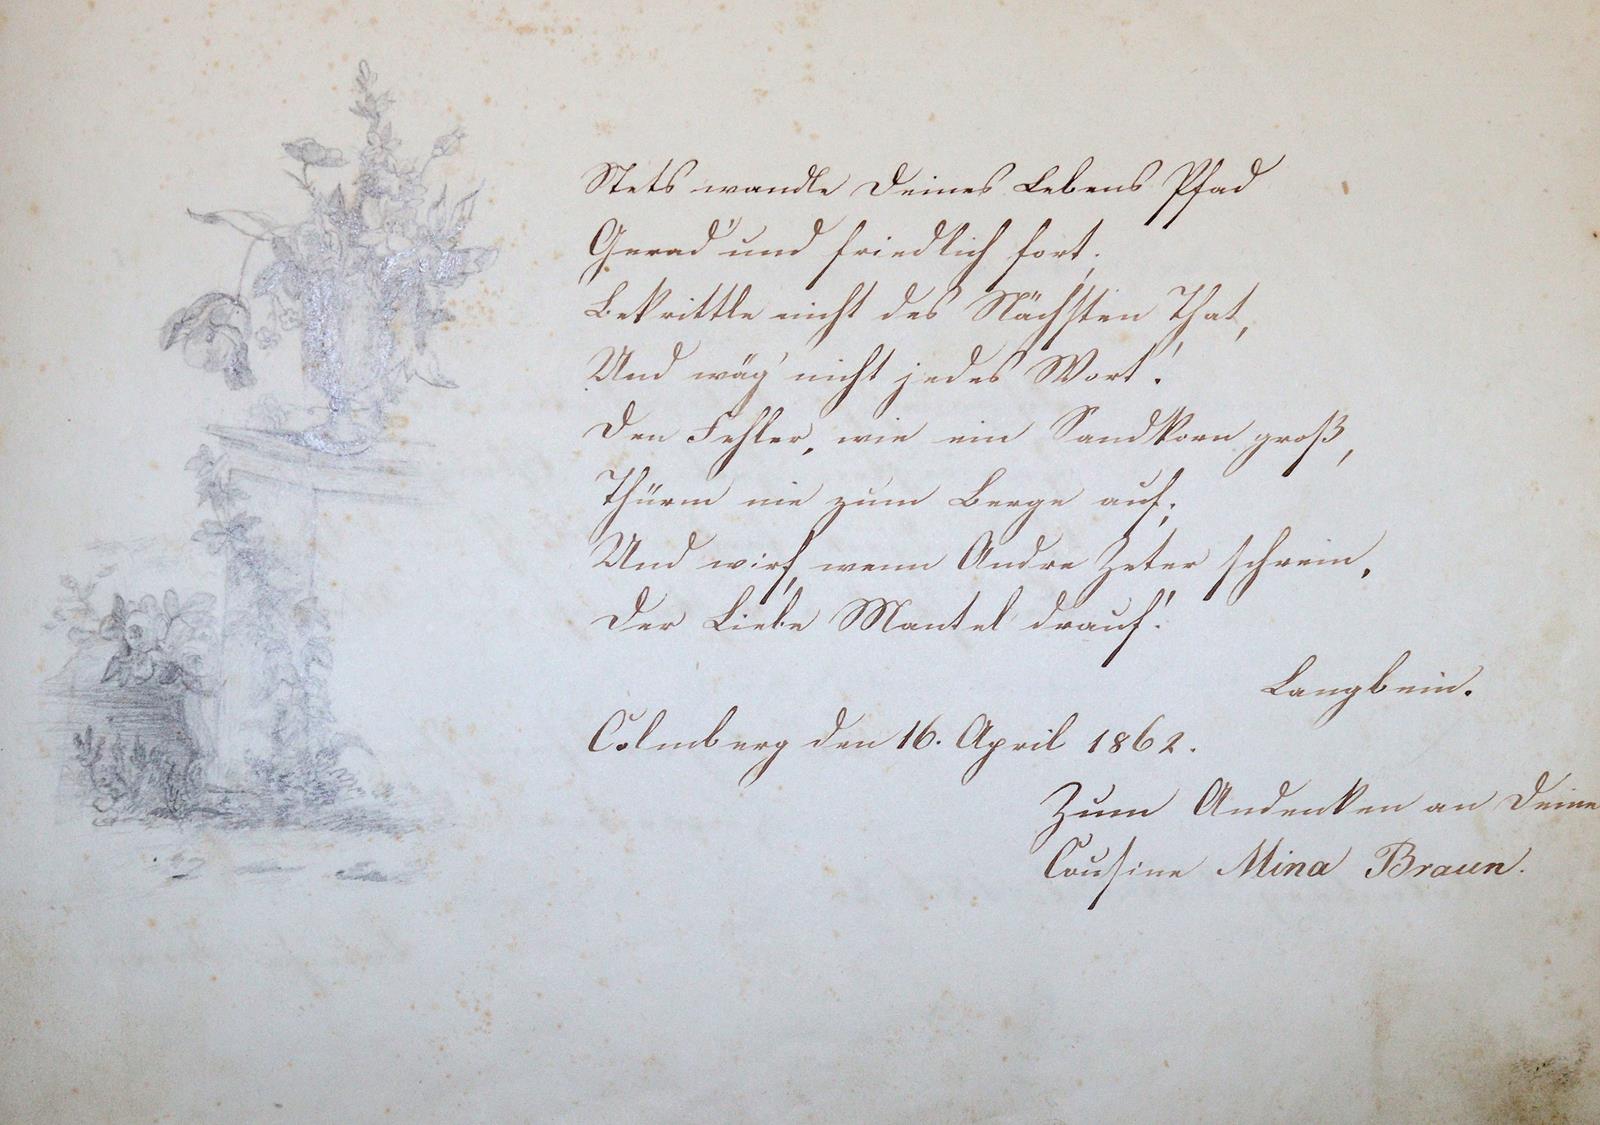 Stets wandle Deines Lebens Pfad
Gerad' und friedlich fort;
Bekrittle nicht des Nächsten That,
Und wäg' nicht jedes Wort!
Den Fehler, wie ein Sandkorn groß,
Thürm nie zum Berge auf;
Und wirf, wenn Andre Zeter schrein,
Der Liebe Mantel drauf!
Langbein.
Colmberg den 16. April 1862.
Zum Andenken an Deine
Cousine Mina Braun.